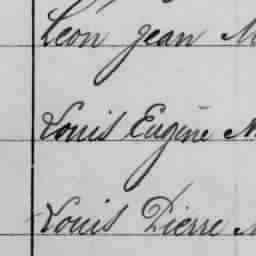 Léon Jean M
Louis Eugène M
Louis Pierre M